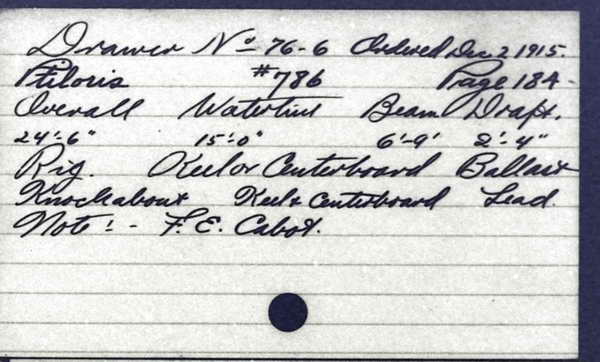 Drawer No 76-6 Ordered Dec 2 1915.
Ptiloris #786 Page 184-
Overall Waterline Beam Draft.
24'-6" 15'-0" 6'-9" 2'-4"
Rig. Keel or Centerboard Ballast
Knockabout Keel & Centerboard Lead.
Note:- F. E. Cabot.